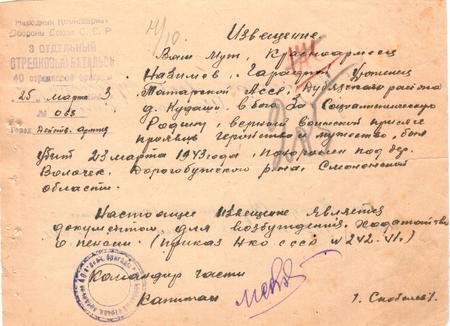 Народный Комиссариат
Обороны Союза С.С.Р.
3 ОТДЕЛЬНЫЙ
СТРЕЛКОВЫЙ БАТАЛЬОН
40 стрелковой бригады
25 марта 3
№ 068
Город Действ. Армия
14/10
Извещение.
Ваш муж, Красноармеец
Назимов Уроженец
Татарской Асср, района
д. Кудаши в бою за Социалистическую
Родину, верный воинской присяге
проявив геройство и мужество, был
Убит 23 марта 1943 года, похоронен под дер.
Волочек, Дорогобужского р-на, Смоленской
области.
Настоящее Извещение является
документом для возбуждения Ходатайства
о пенсии. (приказ нко ссср № 242-41г.)
Командир части
Капитан